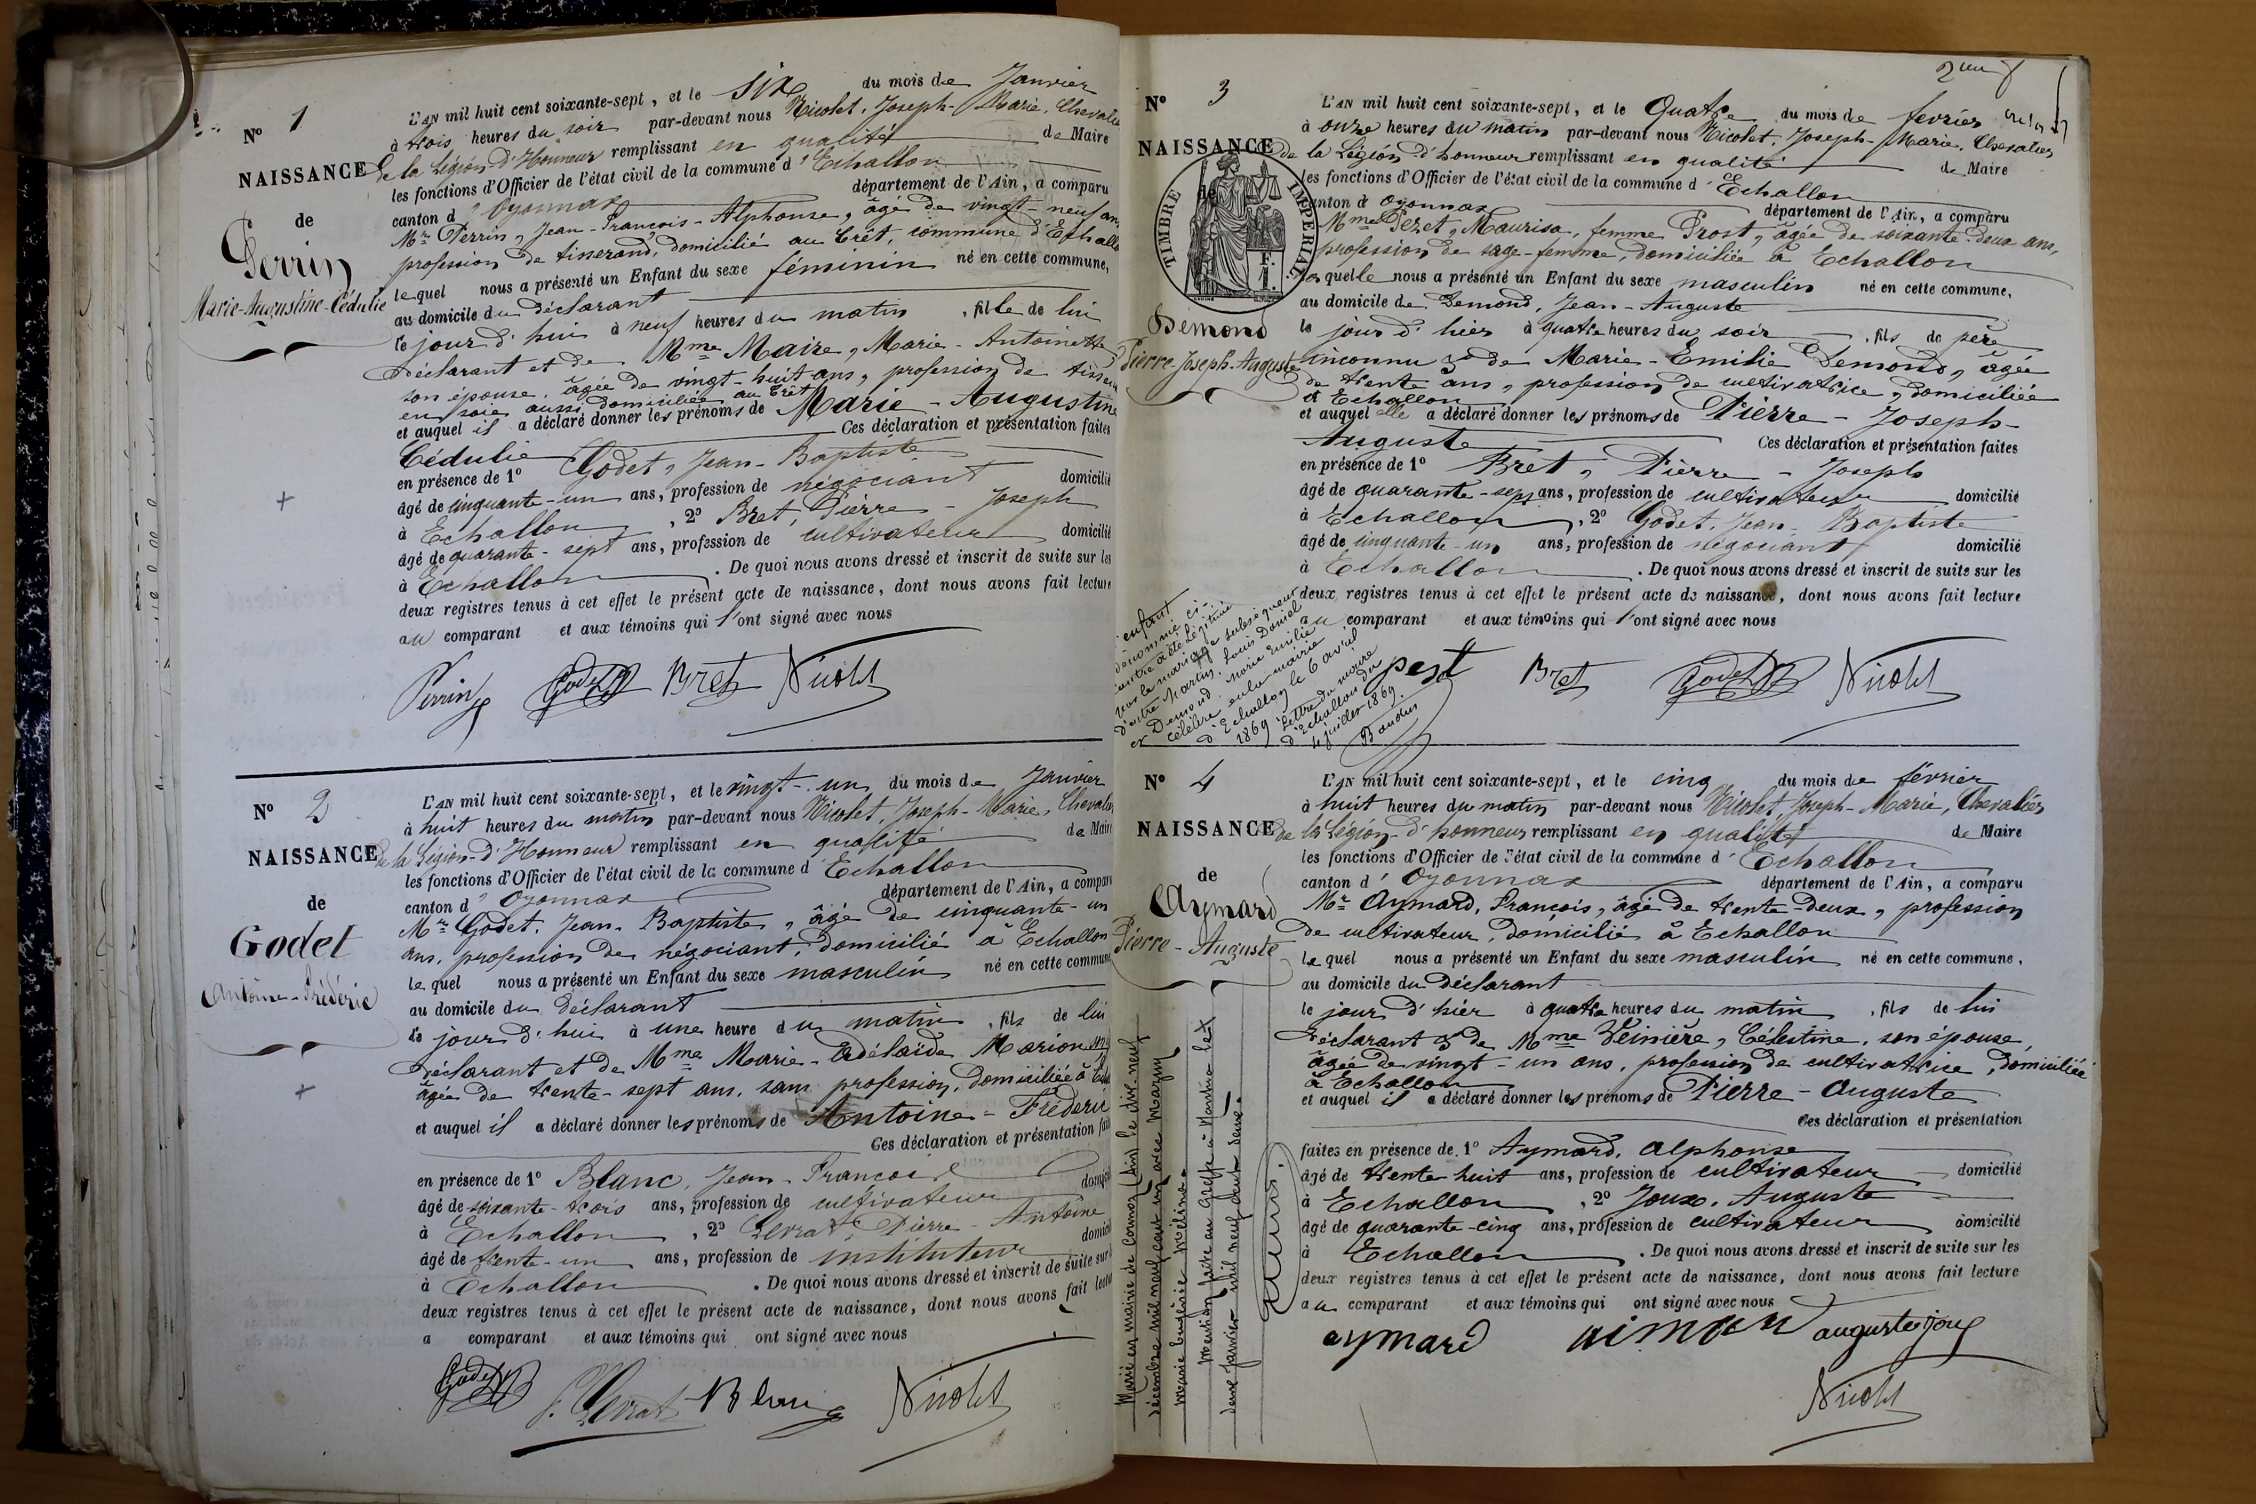 N° 1
NAISSANCE
de
Perrin
Marie-Augustine-Cédulie
L'AN mil huit cent soixante-sept, et le six du mois de Janvier
à trois heures du soir par-devant nous Nicolet, Joseph-Marie, Chevalier
de la Légion d'Honneur remplissant en qualité de Maire
les fonctions d'Officier de l'état civil de la commune d'Echallon
canton d'Oyonnax département de l'Ain, a comparu
Mr Perrin, Jean-François-Alphonse, âgé de vingt-neuf ans,
profession de tisserand, domicilié au Crêt, commune d'Echallon
lequel nous a présenté un Enfant du sexe féminin né en cette commune,
au domicile du déclarant
le jour d'hui à neuf heures du matin, fille de lui
déclarant et de Mme Maire, Marie-Antoinette,
son épouse, âgée de vingt-huit ans, profession de
en soie aussi domiciliée au Crêt
et auquel il a déclaré donner les prénoms de Marie-Augustine
Cédulie Ces déclaration et présentation faites
en présence de 1° Godet, Jean-Baptiste
âgé de cinquante-un ans, profession de négociant domicilié
à Echallon, 2° Bret, Pierre-Joseph
âgé de quarante-sept ans, profession de cultivateur domicilié
à Echallon. De quoi nous avons dressé et inscrit de suite sur les
deux registres tenus à cet effet le présent acte de naissance, dont nous avons fait lecture
au comparant et aux témoins qui l'ont signé avec nous
Perrin Godet Bret Nicolet
N° 2
NAISSANCE
de
Godet
Antoine-Fréderic
L'AN mil huit cent soixante-sept, et le vingt-un du mois de Janvier
à huit heures du matin par-devant nous Nicolet, Joseph-Marie, Chevalier
de la Légion-d'Honneur remplissant en qualité de Maire
les fonctions d'Officier de l'état civil de la commune d'Echallon
canton d'Oyonnax département de l'Ain, a comparu
Mr Godet, Jean-Baptiste, âgé de cinquante-un
ans, profession de négociant, domicilié à Echallon
lequel nous a présenté un Enfant du sexe masculin né en cette commune
au domicile du déclarant
le jour d'hui à une heure du matin, fils de lui
déclarant et de Mme Marie-Adélaïde Marion
âgée de trente-sept ans, sans profession, domiciliée à
et auquel il a déclaré donner les prénoms de Antoine-Fréderic
Ces déclaration et présentation
en présence de 1° Blanc, Jean-François
âgé de soixante-trois ans, profession de cultivateur
à Echallon, 2° Levrat, Pierre-Antoine
âgé de trente-un ans, profession de instituteur
à Echallon. De quoi nous avons dressé et inscrit de suite sur
deux registres tenus à cet effet le présent acte de naissance, dont nous avons fait
a comparant et aux témoins qui ont signé avec nous
Godet P. Levrat Blanc Nicolet
N° 3
NAISSANCE
de
TIMBRE IMPERIAL
Demond
Pierre-Joseph-Auguste
L'AN mil huit cent soixante-sept, et le Quatre du mois de février
à onze heures du matin par-devant nous Nicolet, Joseph-Marie, Chevalier
de la Légion-d'honneur remplissant en qualité de Maire
les fonctions d'Officier de l'état civil de la commune d'Echallon
canton d'Oyonnax département de l'Ain, a comparu
Mme Perret, Maurisa, femme Prost, âgée de soixante-deux ans,
profession de sage-femme, domiciliée à Echallon
laquelle nous a présenté un Enfant du sexe masculin né en cette commune,
au domicile de Demond, Jean-Auguste
le jour d'hier à quatre heures du soir, fils de père
inconnu & de Marie-Emilie Demond, âgée
de trente ans, profession de cultivatrice, domiciliée
à Echallon
et auquel elle a déclaré donner les prénoms de Pierre-Joseph-
Auguste Ces déclaration et présentation faites
en présence de 1° Bret, Pierre-Joseph
âgé de quarante-sept ans, profession de cultivateur domicilié
à Echallon, 2° Godet, Jean-Baptiste
âgé de cinquante-un ans, profession de négociant domicilié
à Echallon. De quoi nous avons dressé et inscrit de suite sur les
deux registres tenus à cet effet le présent acte de naissance, dont nous avons fait lecture
au comparant et aux témoins qui l'ont signé avec nous
Bret Godet Nicolet
enfant
dénommé ci-
contre a été légitimé
par le mariage subséquent
d'entre Martin, Louis Daniel
et Demond, Marie Emilie
célébré en la mairie
d'Echallon le 6 avril
1869. Lettre du maire
d'Echallon du
4 juillet 1869.
N° 4
NAISSANCE
de
Aymard
Pierre-Auguste
L'AN mil huit cent soixante-sept, et le cinq du mois de février
à huit heures du matin par-devant nous Nicolet, Joseph-Marie, Chevalier
de la Légion-d'honneur remplissant en qualité de Maire
les fonctions d'Officier de l'état civil de la commune d'Echallon
canton d'Oyonnax département de l'Ain, a comparu
Mr Aymard, François, âgé de trente-deux, profession
de cultivateur, domicilié à Echallon
lequel nous a présenté un Enfant du sexe masculin né en cette commune,
au domicile du déclarant
le jour d'hier à quatre heures du matin, fils de lui
déclarant & de Mme Veinière, Célestine, son épouse,
âgée de vingt-un ans, profession de cultivatrice, domiciliée
à Echallon
et auquel il a déclaré donner les prénoms de Pierre-Auguste
Ces déclaration et présentation
faites en présence de 1° Aymard, Alphonse
âgé de trente-huit ans, profession de cultivateur domicilié
à Echallon, 2° Joux, Auguste
âgé de quarante-cinq ans, profession de cultivateur domicilié
à Echallon. De quoi nous avons dressé et inscrit de suite sur les
deux registres tenus à cet effet le présent acte de naissance, dont nous avons fait lecture
au comparant et aux témoins qui ont signé avec nous
aymard aimar auguste joux
Nicolet
Marié en mairie de Cormoz (Ain) le dix-neuf
décembre mil neuf cent un avec Mazuy
Marie Eugénie Mélina.
Mention faite au Greffe à Nantua le
deux Janvier mil neuf cent deux.